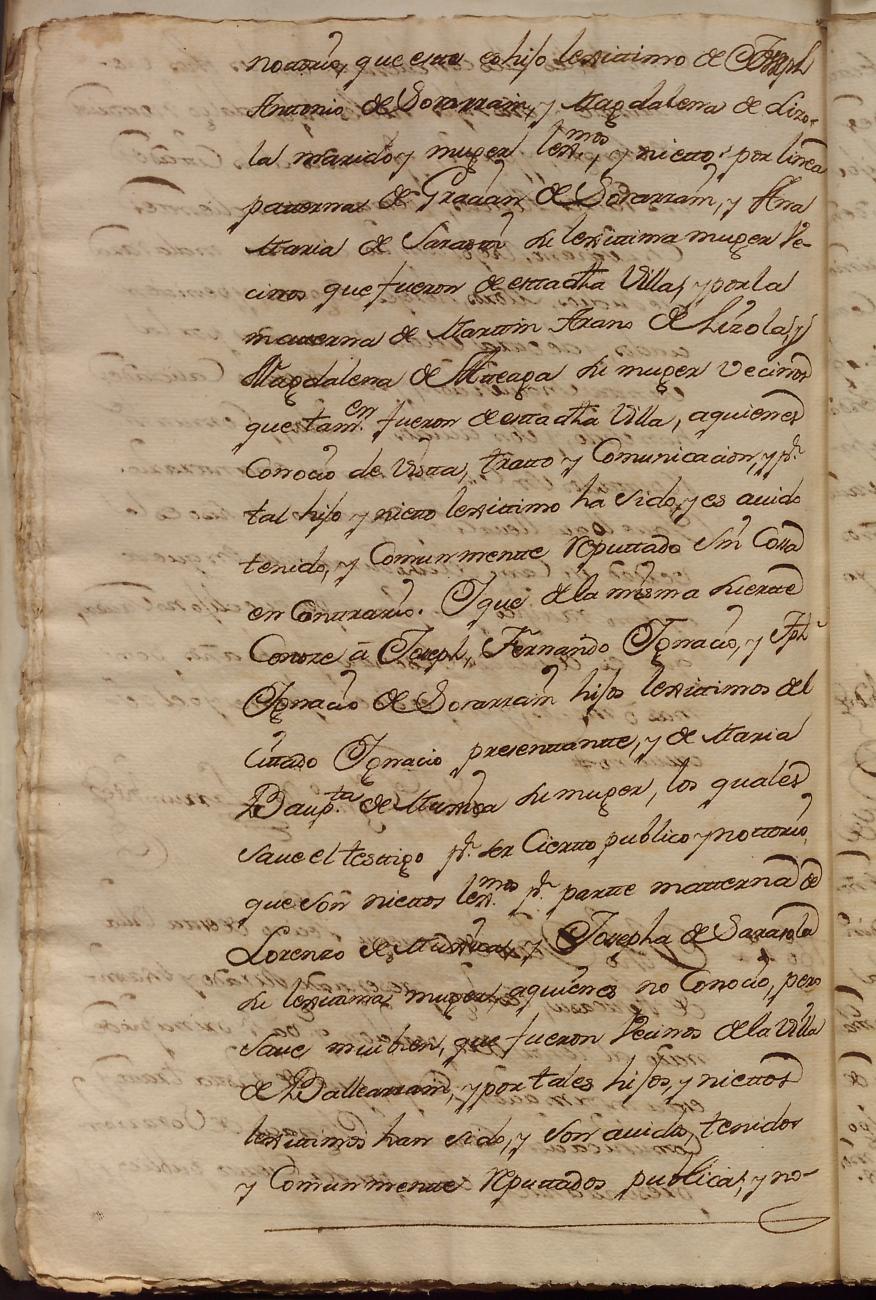 notrio, que este es hijo lexittimo de Joseph
Antonio de Sorarrain, y Magdalena de Lizo-
la marido y muger lex.mos, y nietto por linea
paterna de Gracian de Sorarrain, y Ana
Maria de Sarasin su lexittima muger Ve-
cinos que fueron de esta dha Villa, y por la
materna de Marttin Arano de Lizola, y
Magdalena de Atteaga su muger vecinos
que tam.en fueron de esta dha Villa, aquienes
Conocio de Vista, tratto y Comunicacion, y pr.
tal hijo y nietto lexittimo ha sido, y es avido
tenido, y Comunmente Reputtado sin Cossa
en Contrario. Yque de la misma suerte
Conoze â Joseph, Fernando Ignacio, y Jph
Ignacio de Sorarrain hijos lexittimos del
Cittado Ignacio presentante, y de Maria
Baup.ta de Munoa su muger, los quales
save el testigo pr. ser Cierto publico y nottorio,
que son niettos lex.mos pr. partte matterna de
Lorenzo de y Josepha de Sarasola
su lexitima muger, aquienes no Conocio, pero
save mui bien, que fueron Vecinos de la Villa
de Balliarrain, y por tales hijos, y niettos
lexittimos han sido, y son avidos, tenidos
y Comunmente Reputtados publica, y no-